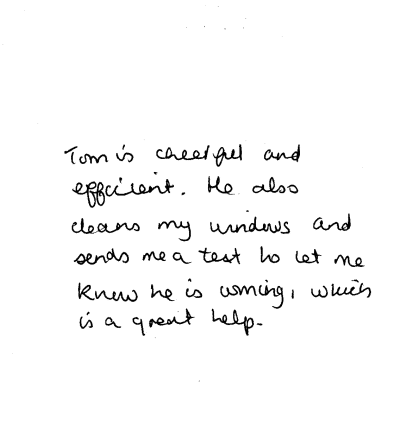 Tom is cheerful and
efficient. He also
cleans my windows and
sends me a text to let me
know he is coming, which
is a great help.